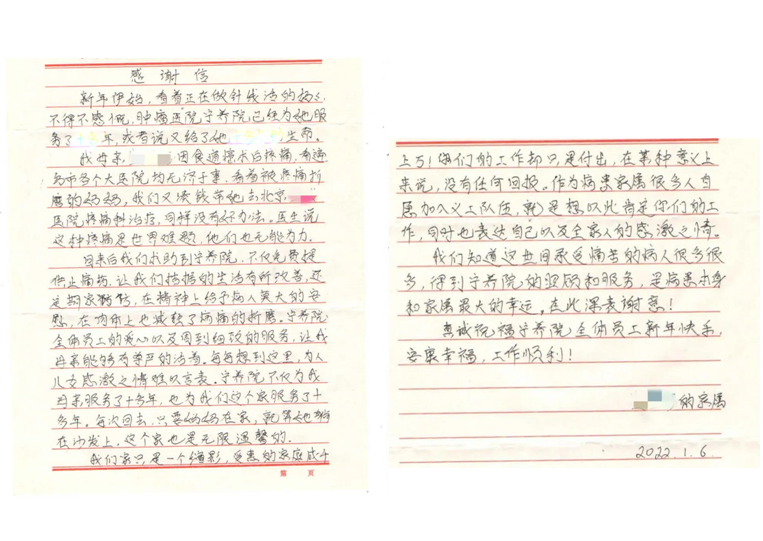 感谢信
新年伊始，看着正在做针线活的妈妈，
不得不感慨，肿瘤医院宁养院已经为她服
务了 年，或者说又给了她 生命。
我母亲， 因食道烧术后疼痛，看遍
当市各个大医院均无济于事，看着被疼痛折
磨的妈妈，我们又凑钱带她去北京
医院疼痛科治疗，同样没有好办法。医生说
这种疼痛是世界难题，他们也无能为力。
回来后我们求助到宁养院，不仅免费提
供止痛药，让我们拮据的生活有所改善，还
定期家 ，在精神上给予病人莫大的安
慰，在肉体上也减轻了病痛的折磨。宁养院
全体员工的爱心以及周到细致的服务，让我
母亲能够有尊严的活着。每每想到这里，为人
儿女感激之情难以言表。宁养院不仅为我
母亲服务了十多年，也为我们这个家服务了十
多年。每次回去，只要妈妈在家，就算她躺
在沙发上，这个家也是无限温馨的。
我们家只是一个缩影，受惠的家庭成千
第 页
上万！你们的工作却只是付出，在某种意义上
来说，没有任何回报。作为病患家属很多人自
愿加入义工队伍，就是想以此肯定你们的工
作，同时也表达自己以及全家人的感激之情。
我们知道这世间承受痛苦的病人很多很
多，得到宁养院的照顾和服务，是病患本身
和家属最大的幸运。在此深表谢意！
真诚祝福宁养院全体员工新年快乐，
安康幸福，工作顺利！
的家属
2022.1.6